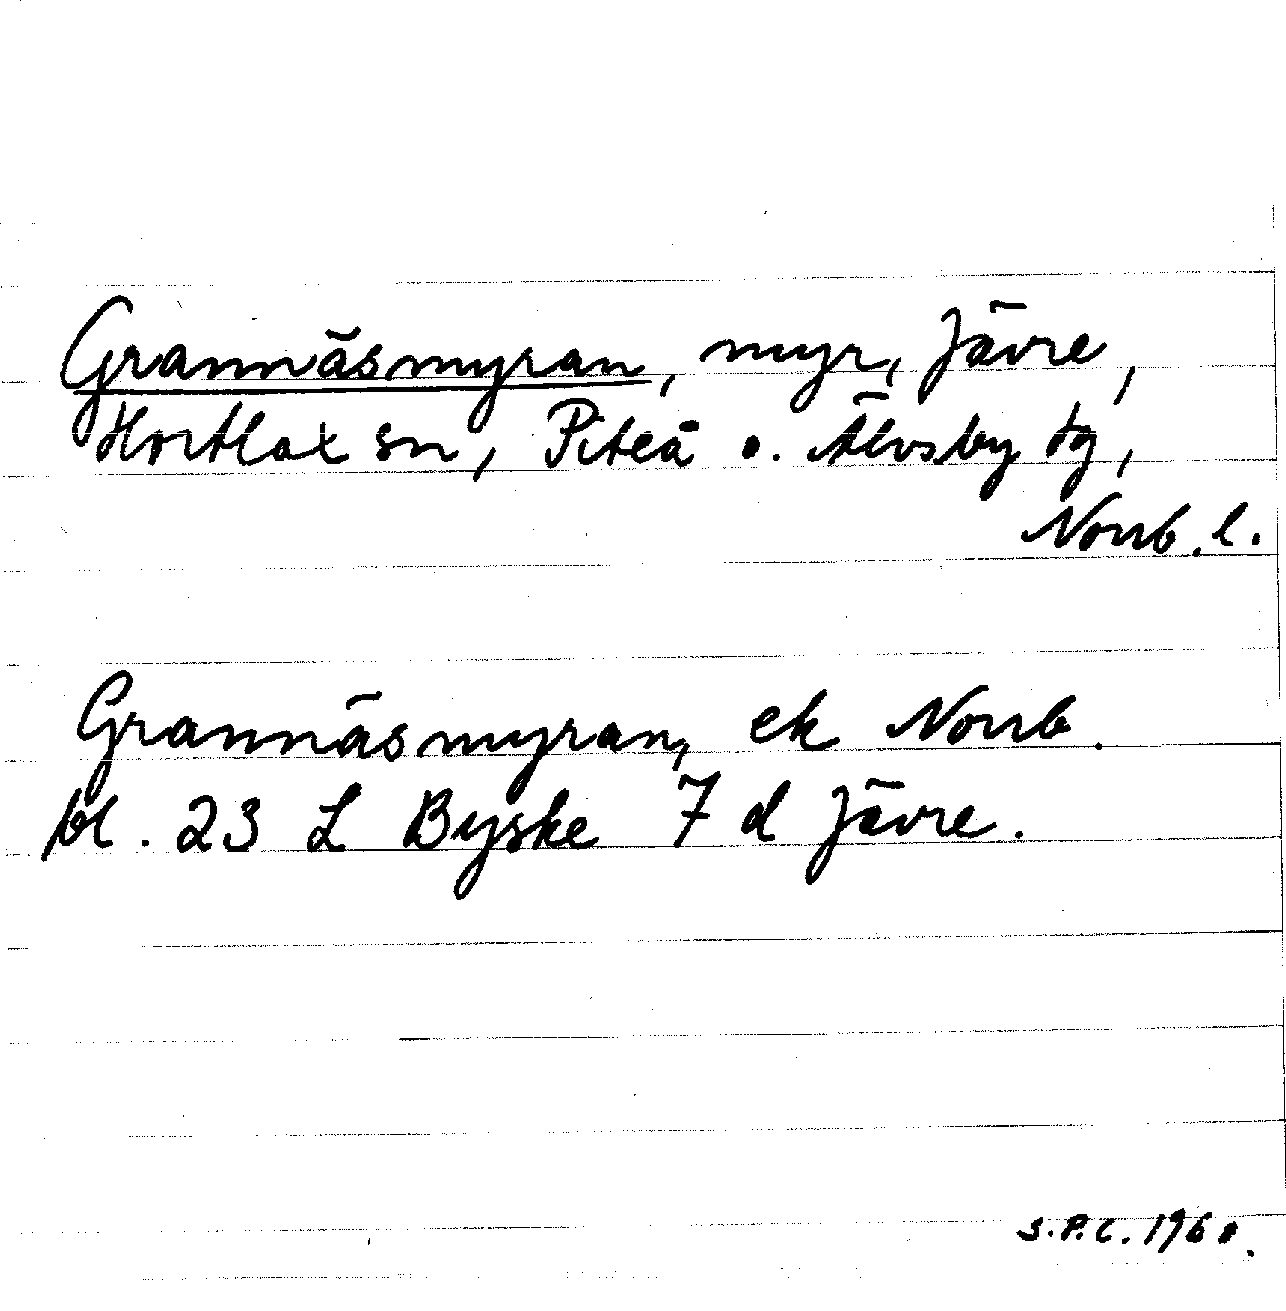 Grannäsmyran, myr, Jävre,
Hortlax sn, Piteå o. Älvsby tg,
Norrb. l.
Grannäsmyran, ek Norrb.
bl. 23 L Byske 7 d Jävre.
S.P.C. 1960.